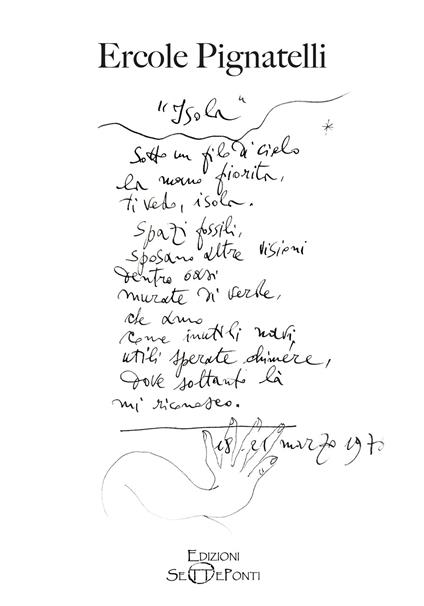 Ercole Pignatelli
"Isola"
Sotto un filo di cielo
la mano fiorita,
ti vedo, isola.
Spazi fossili,
sposano altre visioni
dentro oasi
murate di verde,
che amo
come inutili navi,
utili sperate chimére,
dove soltanto là
mi riconosco.
18.21 marzo 1970
EDIZIONI
SETTEPONTI